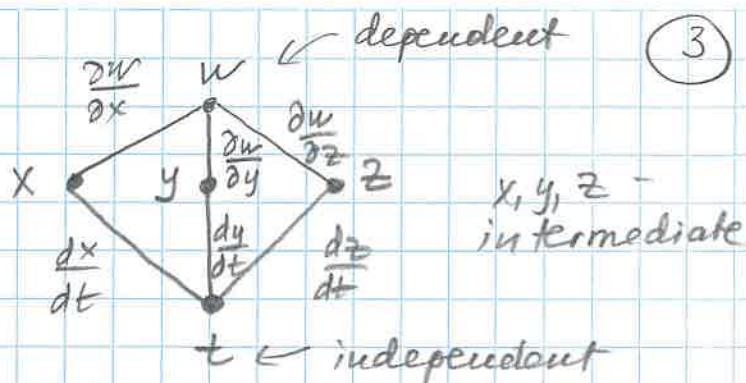 w ← dependent
3
∂w/∂x
∂w/∂z
∂w/∂y
x y z
x, y, z -
intermediate
dx/dt
dy/dt
dz/dt
t ← independent